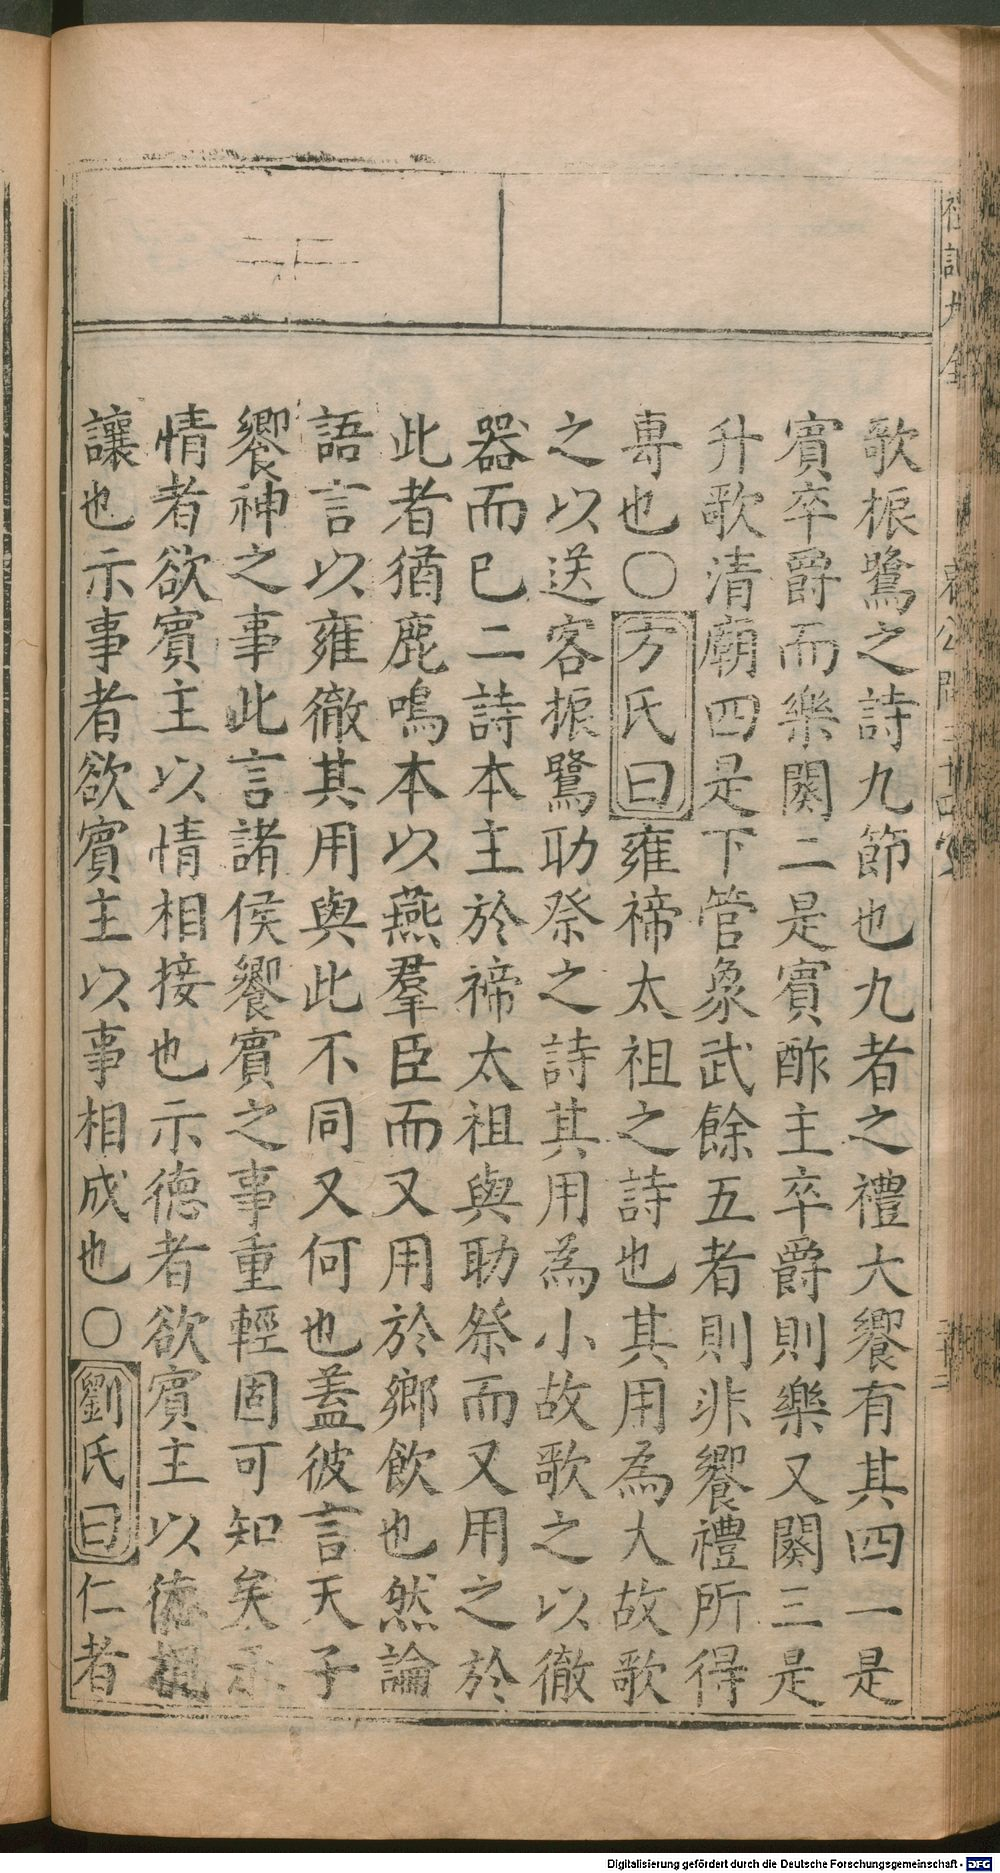 歌振鷺之詩九節也九者之禮大饗有其四一是
賓卒爵而樂闋二是賓酢主卒爵則樂又闋三是
升歌清廟四是下管象武餘五者則非饗禮所得
專也〇方氏曰雍禘太祖之詩也其用為大故歌
之以送客振鷺助祭之詩其用為小故歌之以徹
器而已二詩本主於禘太祖與助祭而又用之於
此者猶鹿鳴本以燕羣臣而又用於鄉飲也然論
語言以雍徹其用與此不同又何也蓋彼言天子
饗神之事此言諸侯饗賓之事重輕固可知矣示
情者欲賓主以情相接也示德者欲賓主以德相
讓也示事者欲賓主以事相成也〇劉氏曰仁者
Digitalisierung gefördert durch die Deutsche Forschungsgemeinschaft - DFG